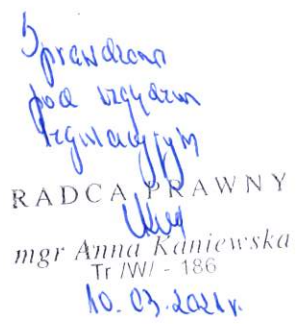 Sprawdzono
pod względem
legislacyjnym
RADCA PRAWNY
mgr Anna Kaniewska
Tr /W/ - 186
10.03.2021 r.